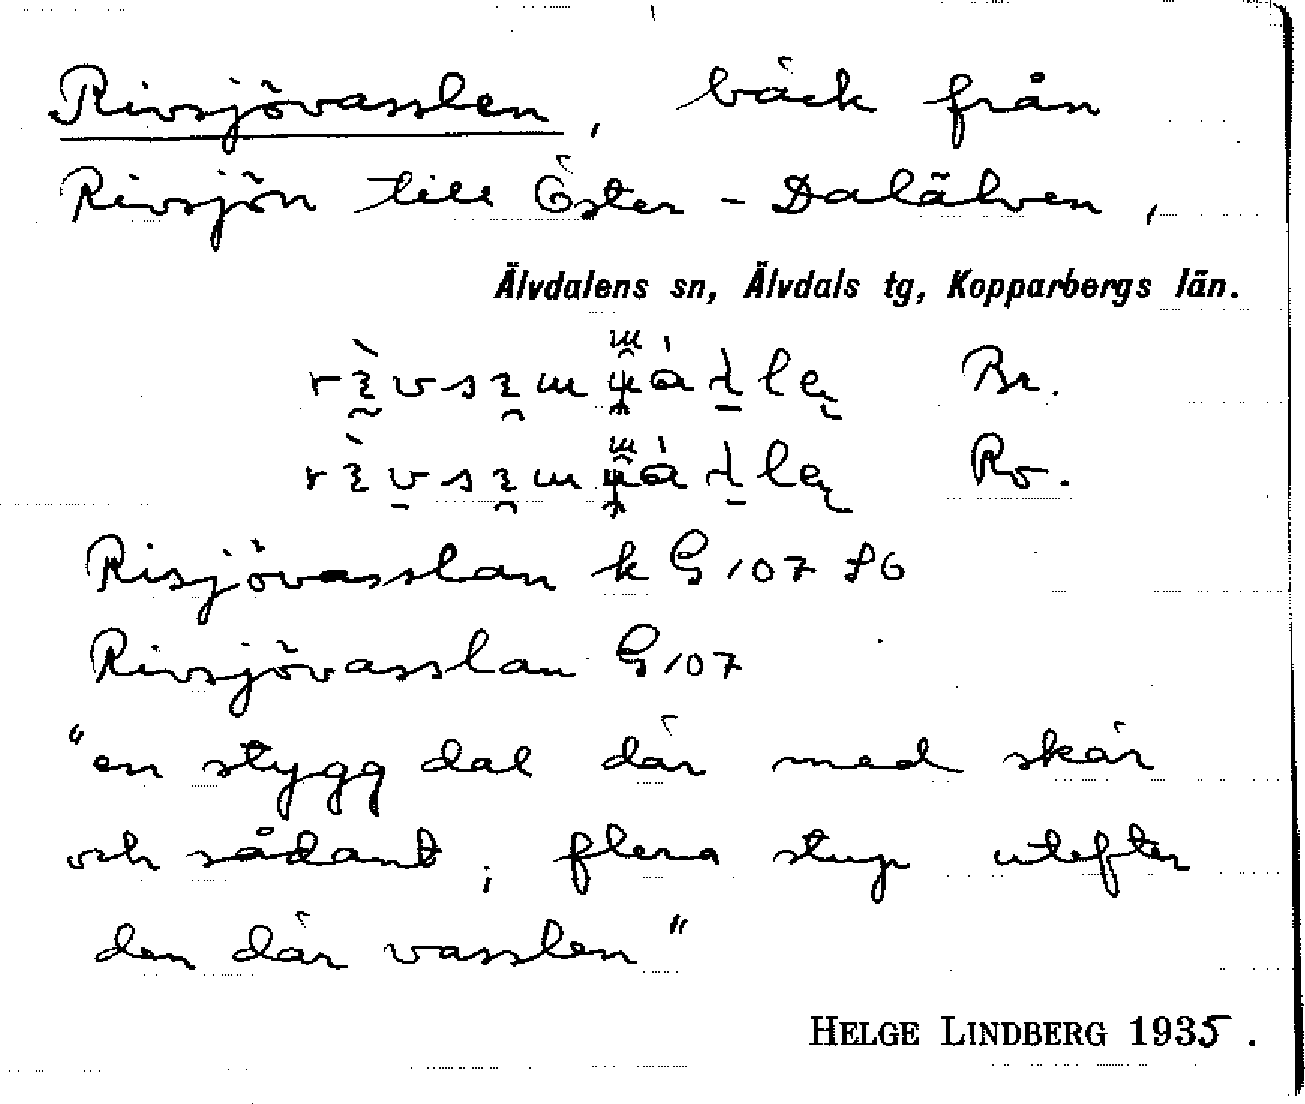 Rivsjövasslen, bäck från
Rivsjön till Öster-Dalälven,
Älvdalens sn, Älvdals tg, Kopparbergs län.
Br.
Ro.
Risjövasslan k G 107 f6
Rivsjövasslan G 107
"en stygg dal där med skär
och sådant; flera stup utefter
den där vasslen"
HELGE LINDBERG 1935.